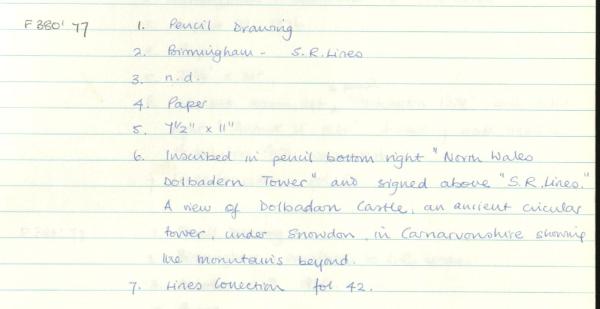 F380' 77 1. Pencil Drawing
2. Birmingham - S.R. Lines
3. n.d.
4. Paper
5. 7½" x 11"
6. Inscribed in pencil bottom right "North Wales
Dolbadern Tower" and signed above "S.R. Lines."
A view of Dolbadarn Castle, an ancient circular
tower, under Snowdon, in Carnarvonshire showing
the mountains beyond.
7. Lines Collection fol 42.